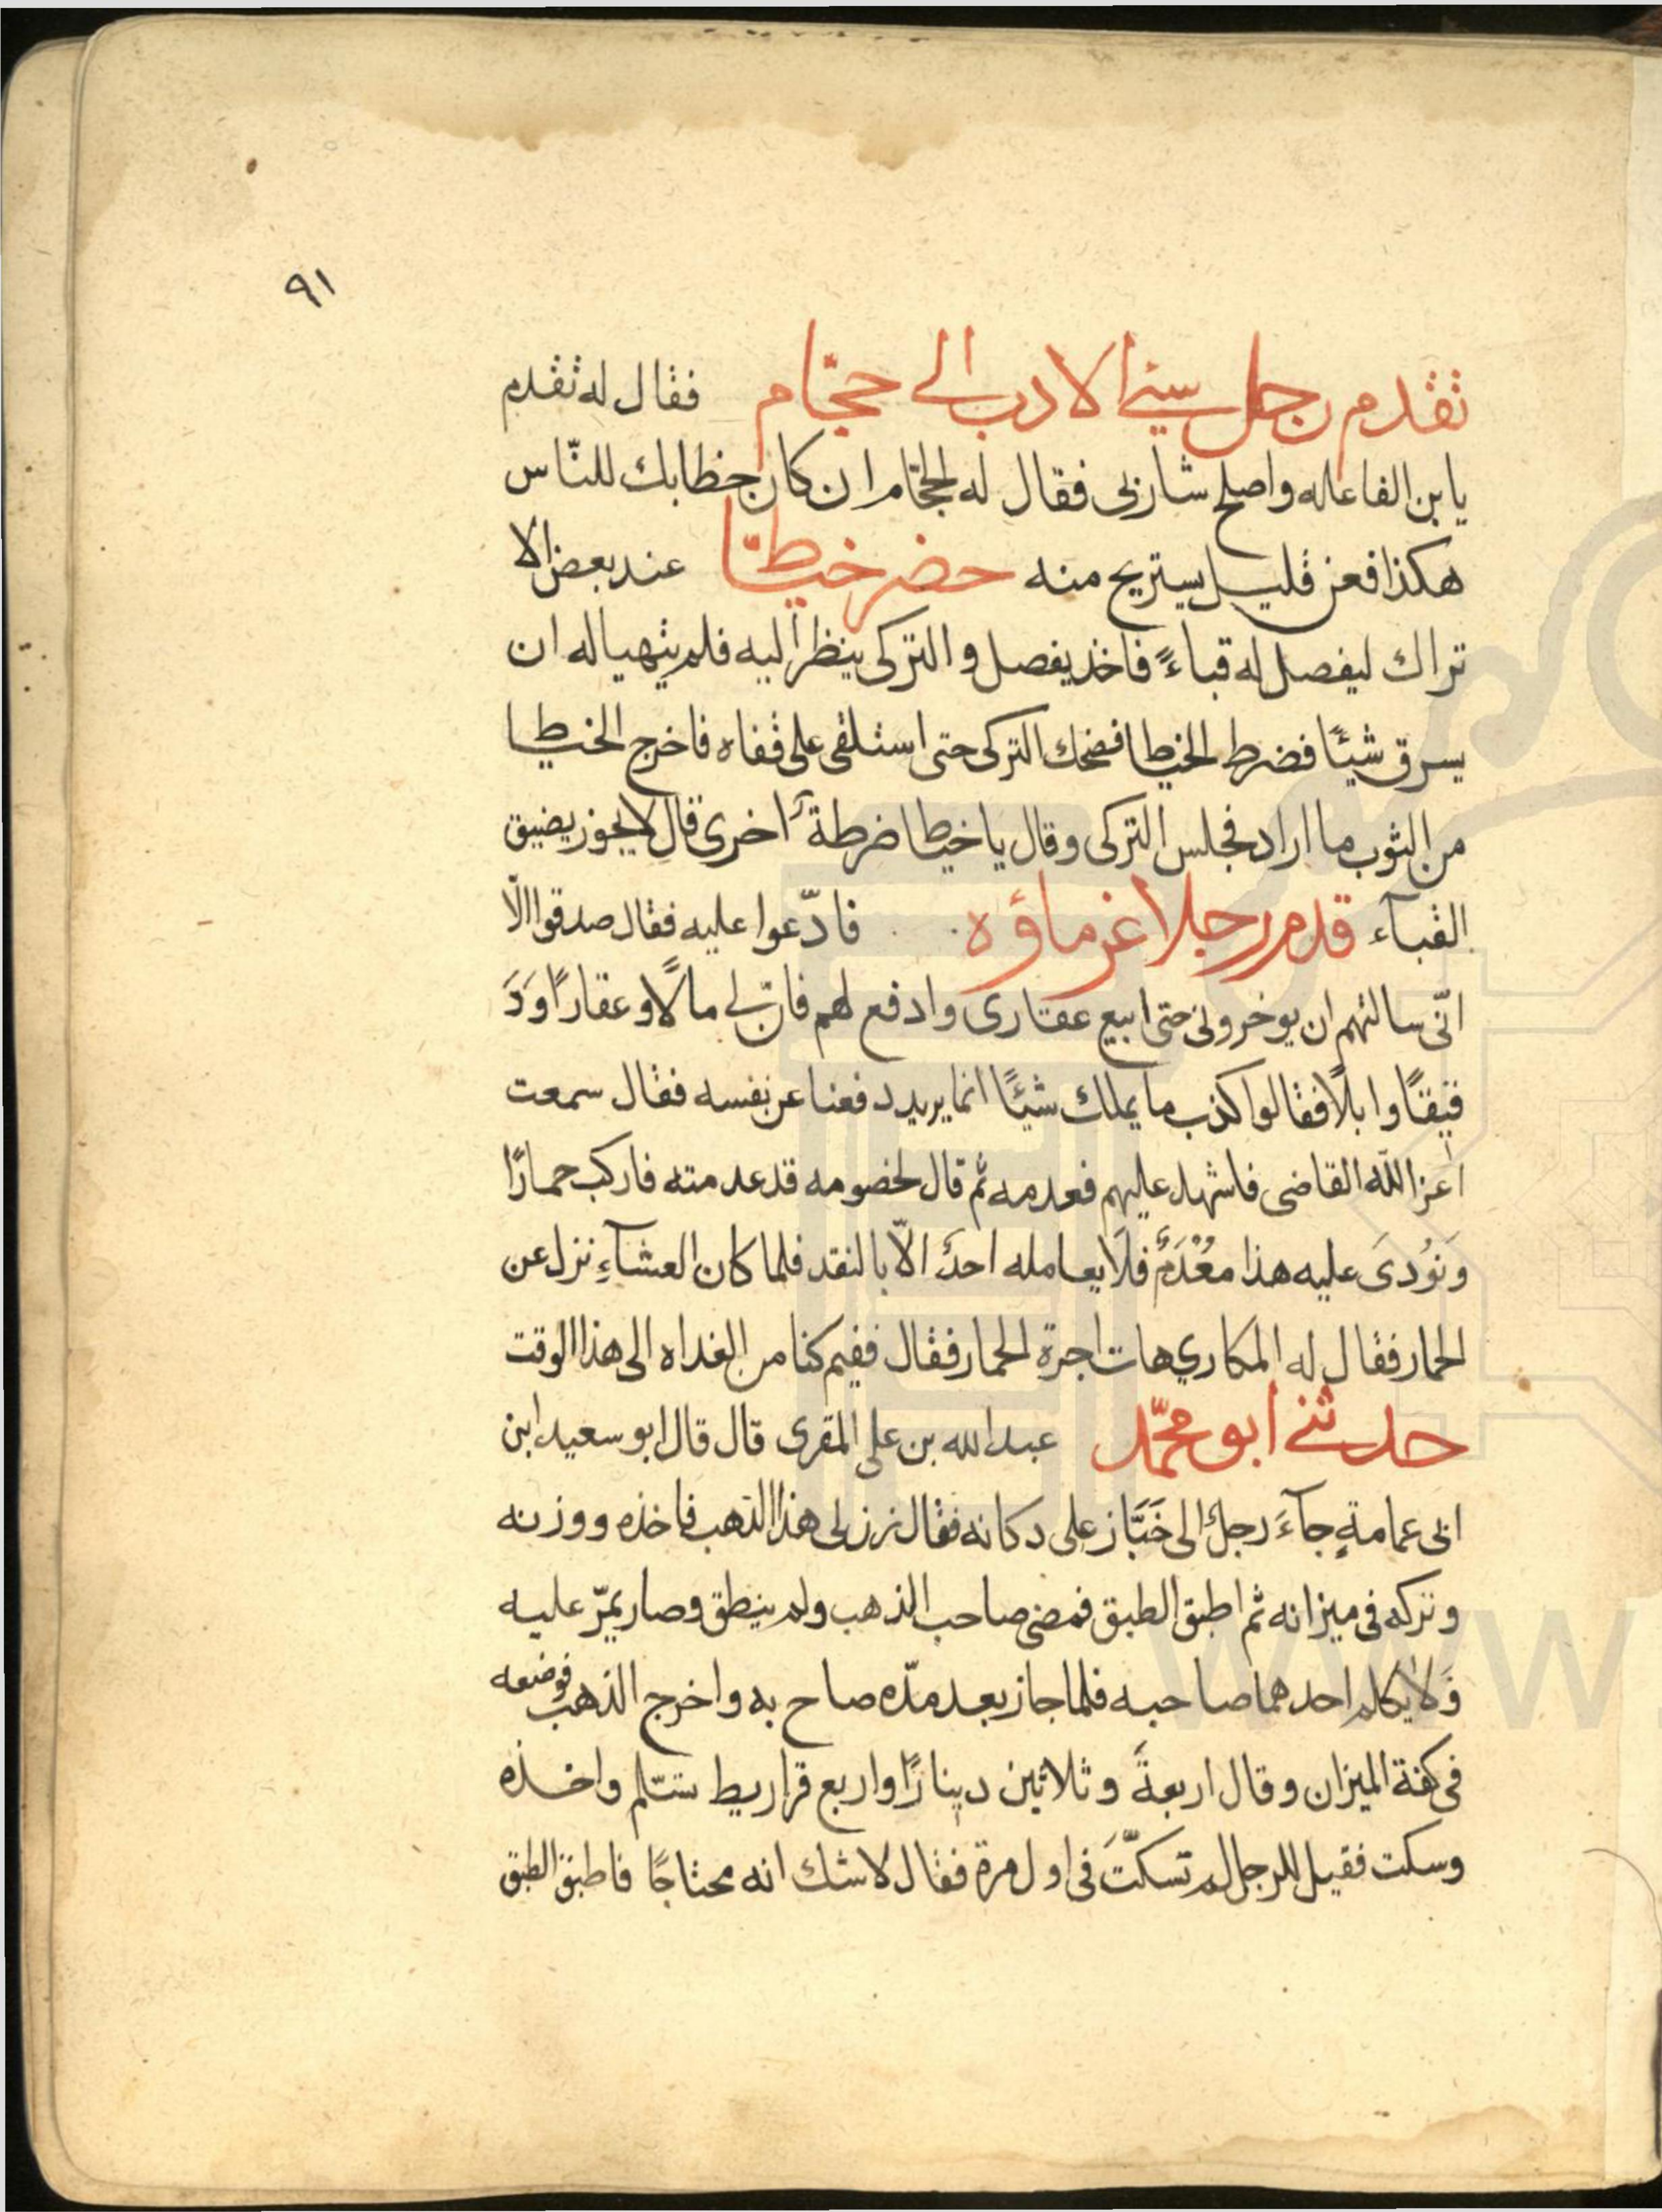 ٩١
تقدم رجل سيئ الادب الى حجّام فقال له تقدم
يا بن الفاعله واصلح شاربى فقال له الحجّام ان كان خطابك للنّاس
هكذا فعن قليل يستريح منه حضر خياطًا عند بعض الا
تراك ليفصل له قباءً فاخذ يفصل و التركى ينظر اليه فلم يتهيا له ان
يسرق شيئًا فضرط الخياط فضحك التركى حتى استلقى على قفاه فاخرج الخياط
من الثوب ما اراد فجلس التركى وقال يا خياط اضرطة اخرى قال لا يجوز يضيق
القبآء قدم رجلا غرماؤه فادّعوا عليه فقال صدقوا الّا
انّى سالتهم ان يوخرونى حتى ابيع عقارى وادفع لهم فان لى مالًا و عقارًا وَدَ
قيقًا وابلًا فقالوا كذب ما يملك شيئًا انما يريد دفعنا عن نفسه فقال سمعت
اعز اللّه القاضى فاشهد عليهم فعدمه ثم قال لخصومه قد عدمته فاركب حمارًا
وَنوُدىَ عليه هذا معُْدَمٌ فلَا يعامله احدٌ الّا بالنقد فلما كان العشآءِ نزل عن
الحمار فقال له المكاري هات اجرة الحمار فقال ففيم كنا من الغداه الى هذا الوقت
حدثنى ابو محمّد عبد الله بن على المقرى قال قال ابو سعيد ابن
ابى عمامةٍ جآءَ رجلٌ الى خَبَّاز على دكانه فقال زن لى هذا الذهب فاخذه ووزنه
وتركه فى ميزانه ثم اطبق الطبق فمضى صاحب الذهب ولم ينطق وصار يمرّ عليه
وَلا يكلم احدهما صاحبه فلما جاز بعد مدّه صاح به واخرج الذهب فوضعه
فى كفة الميزان وقال اربعةً وثلاثين دينارًا واربع قراريط تسّلم واخذه
وسكت فقيل للرجل لم تسكتّ فى اول مرة فقال لا شك انه محتاجًا فاطبق الطبق